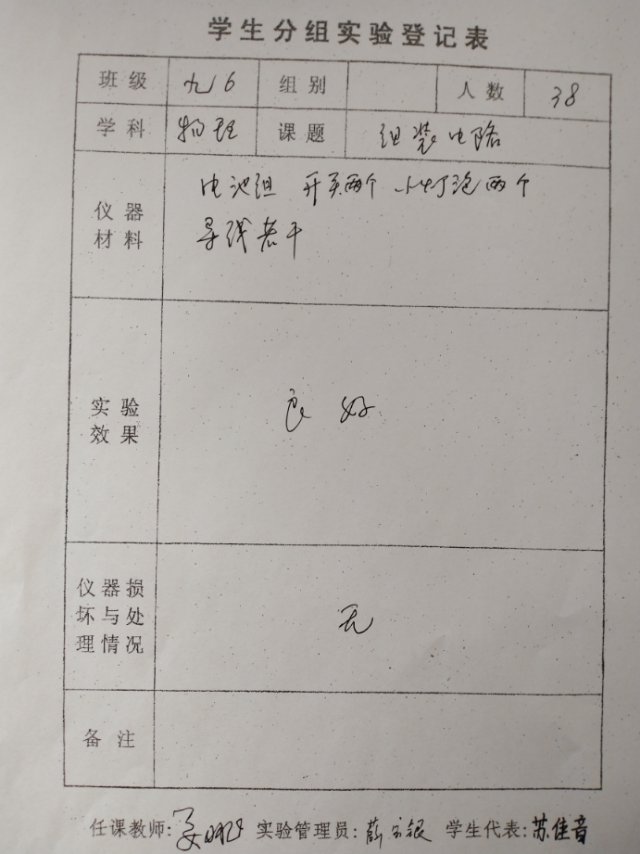 学生分组实验登记表
班级 九6 组别 人数 38
学科 物理 课题 组装电路
仪器材料 电池组 开关两个 小灯泡两个
导线若干
实验效果 良好
仪器损坏与处理情况 无
备注
任课教师: 实验管理员: 学生代表:苏佳音